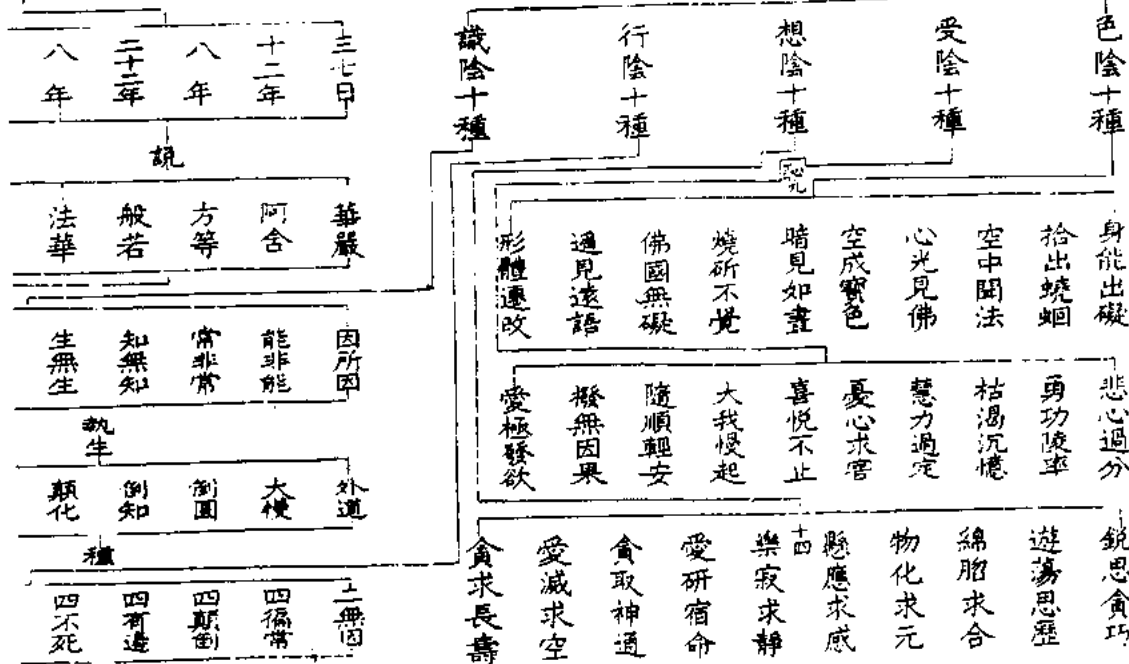 色陰十種
受陰十種
想陰十種
行陰十種
識陰十種
身能出礙
拾出蟯蛔
空中聞法
心光見佛
空成寶色
暗見如晝
燒斫不覺
佛國無礙
遥見遠語
形體遷改
悲心過分
勇功陵率
枯渴沉憶
慧力過定
憂心求害
喜悅不止
大我慢起
隨順輕安
撥無因果
愛極發欲
十四
銳思貪巧
遊蕩思歷
綿𦚾求合
物化求元
懸應求感
樂寂求靜
愛研宿命
貪取神通
愛滅求空
貪求長壽
三七日
十二年
八年
二十二年
八年
説
華嚴
阿含
方等
般若
法華
因所因
能非能
常非常
知無知
生無生
執生
外道
大慢
倒圓
倒知
顛化
種
二無因
四徧常
四顛倒
四有邊
四不死